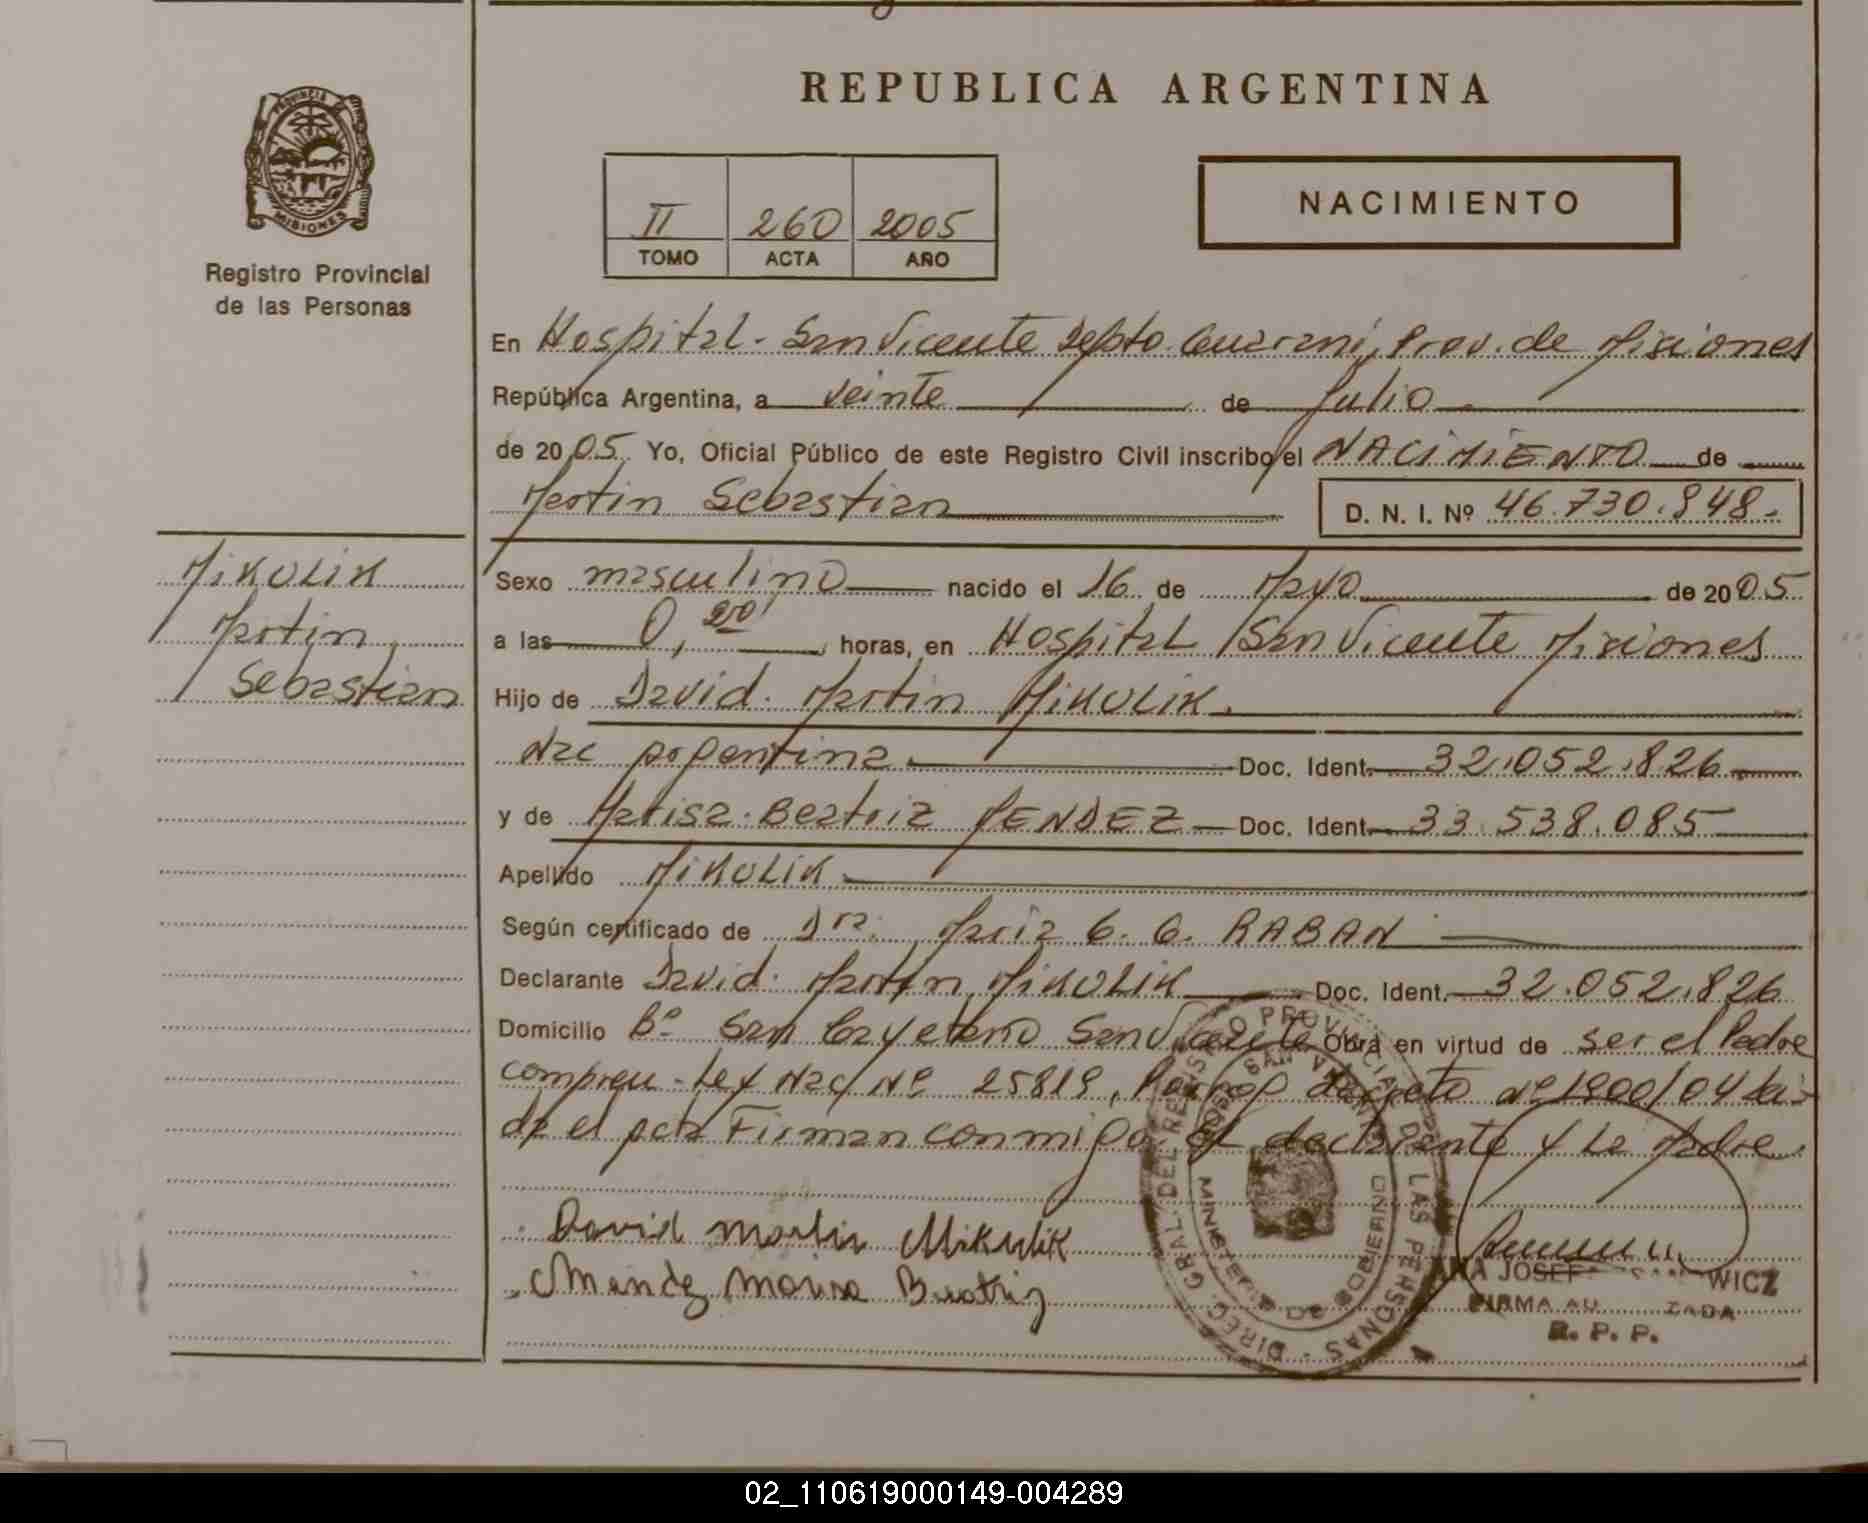 REPUBLICA ARGENTINA
PROVINCIA DE
MISIONES
Registro Provincial
de las Personas
II 260 2005
TOMO ACTA AÑO
NACIMIENTO
En Hospital - San Vicente Depto Guarani, Prov. de Misiones
República Argentina, a veinte de Julio
de 2005 Yo, Oficial Público de este Registro Civil inscribo el NACIMIENTO de
Martin Sebastian D. N. I. Nº 46.730.848.
MIKULIK
Martin
Sebastian
Sexo masculino nacido el 16 de Mayo de 2005
a las 0, horas, en Hospital San Vicente Misiones
Hijo de David Martin MIKULIK.
Nac argentina Doc. Ident. 32.052.826
y de Marisa Beatriz MENDEZ Doc. Ident. 33.538.085
Apellido MIKULIK
Según certificado de Dra. Maria G. G. RABAN
Declarante David Martin MIKULIK Doc. Ident. 32.052.826
Domicilio Bº San Cayetano San Vicente Obra en virtud de ser el Padre
compren. Ley Nac Nº 25819, decreto Nº 1900/04 Lei-
da el acta Firman conmigo el declarante y La Madre.
David Martin Mikulik
Mendez Marisa Beatriz
DIREC. GRAL. DEL REGISTRO PROVINCIAL DE LAS PERSONAS
SAN VICENTE
MINISTERIO DE GOBIERNO
ANA JOSEF WICZ
FIRMA AU ZADA
R. P. P.
02_110619000149-004289